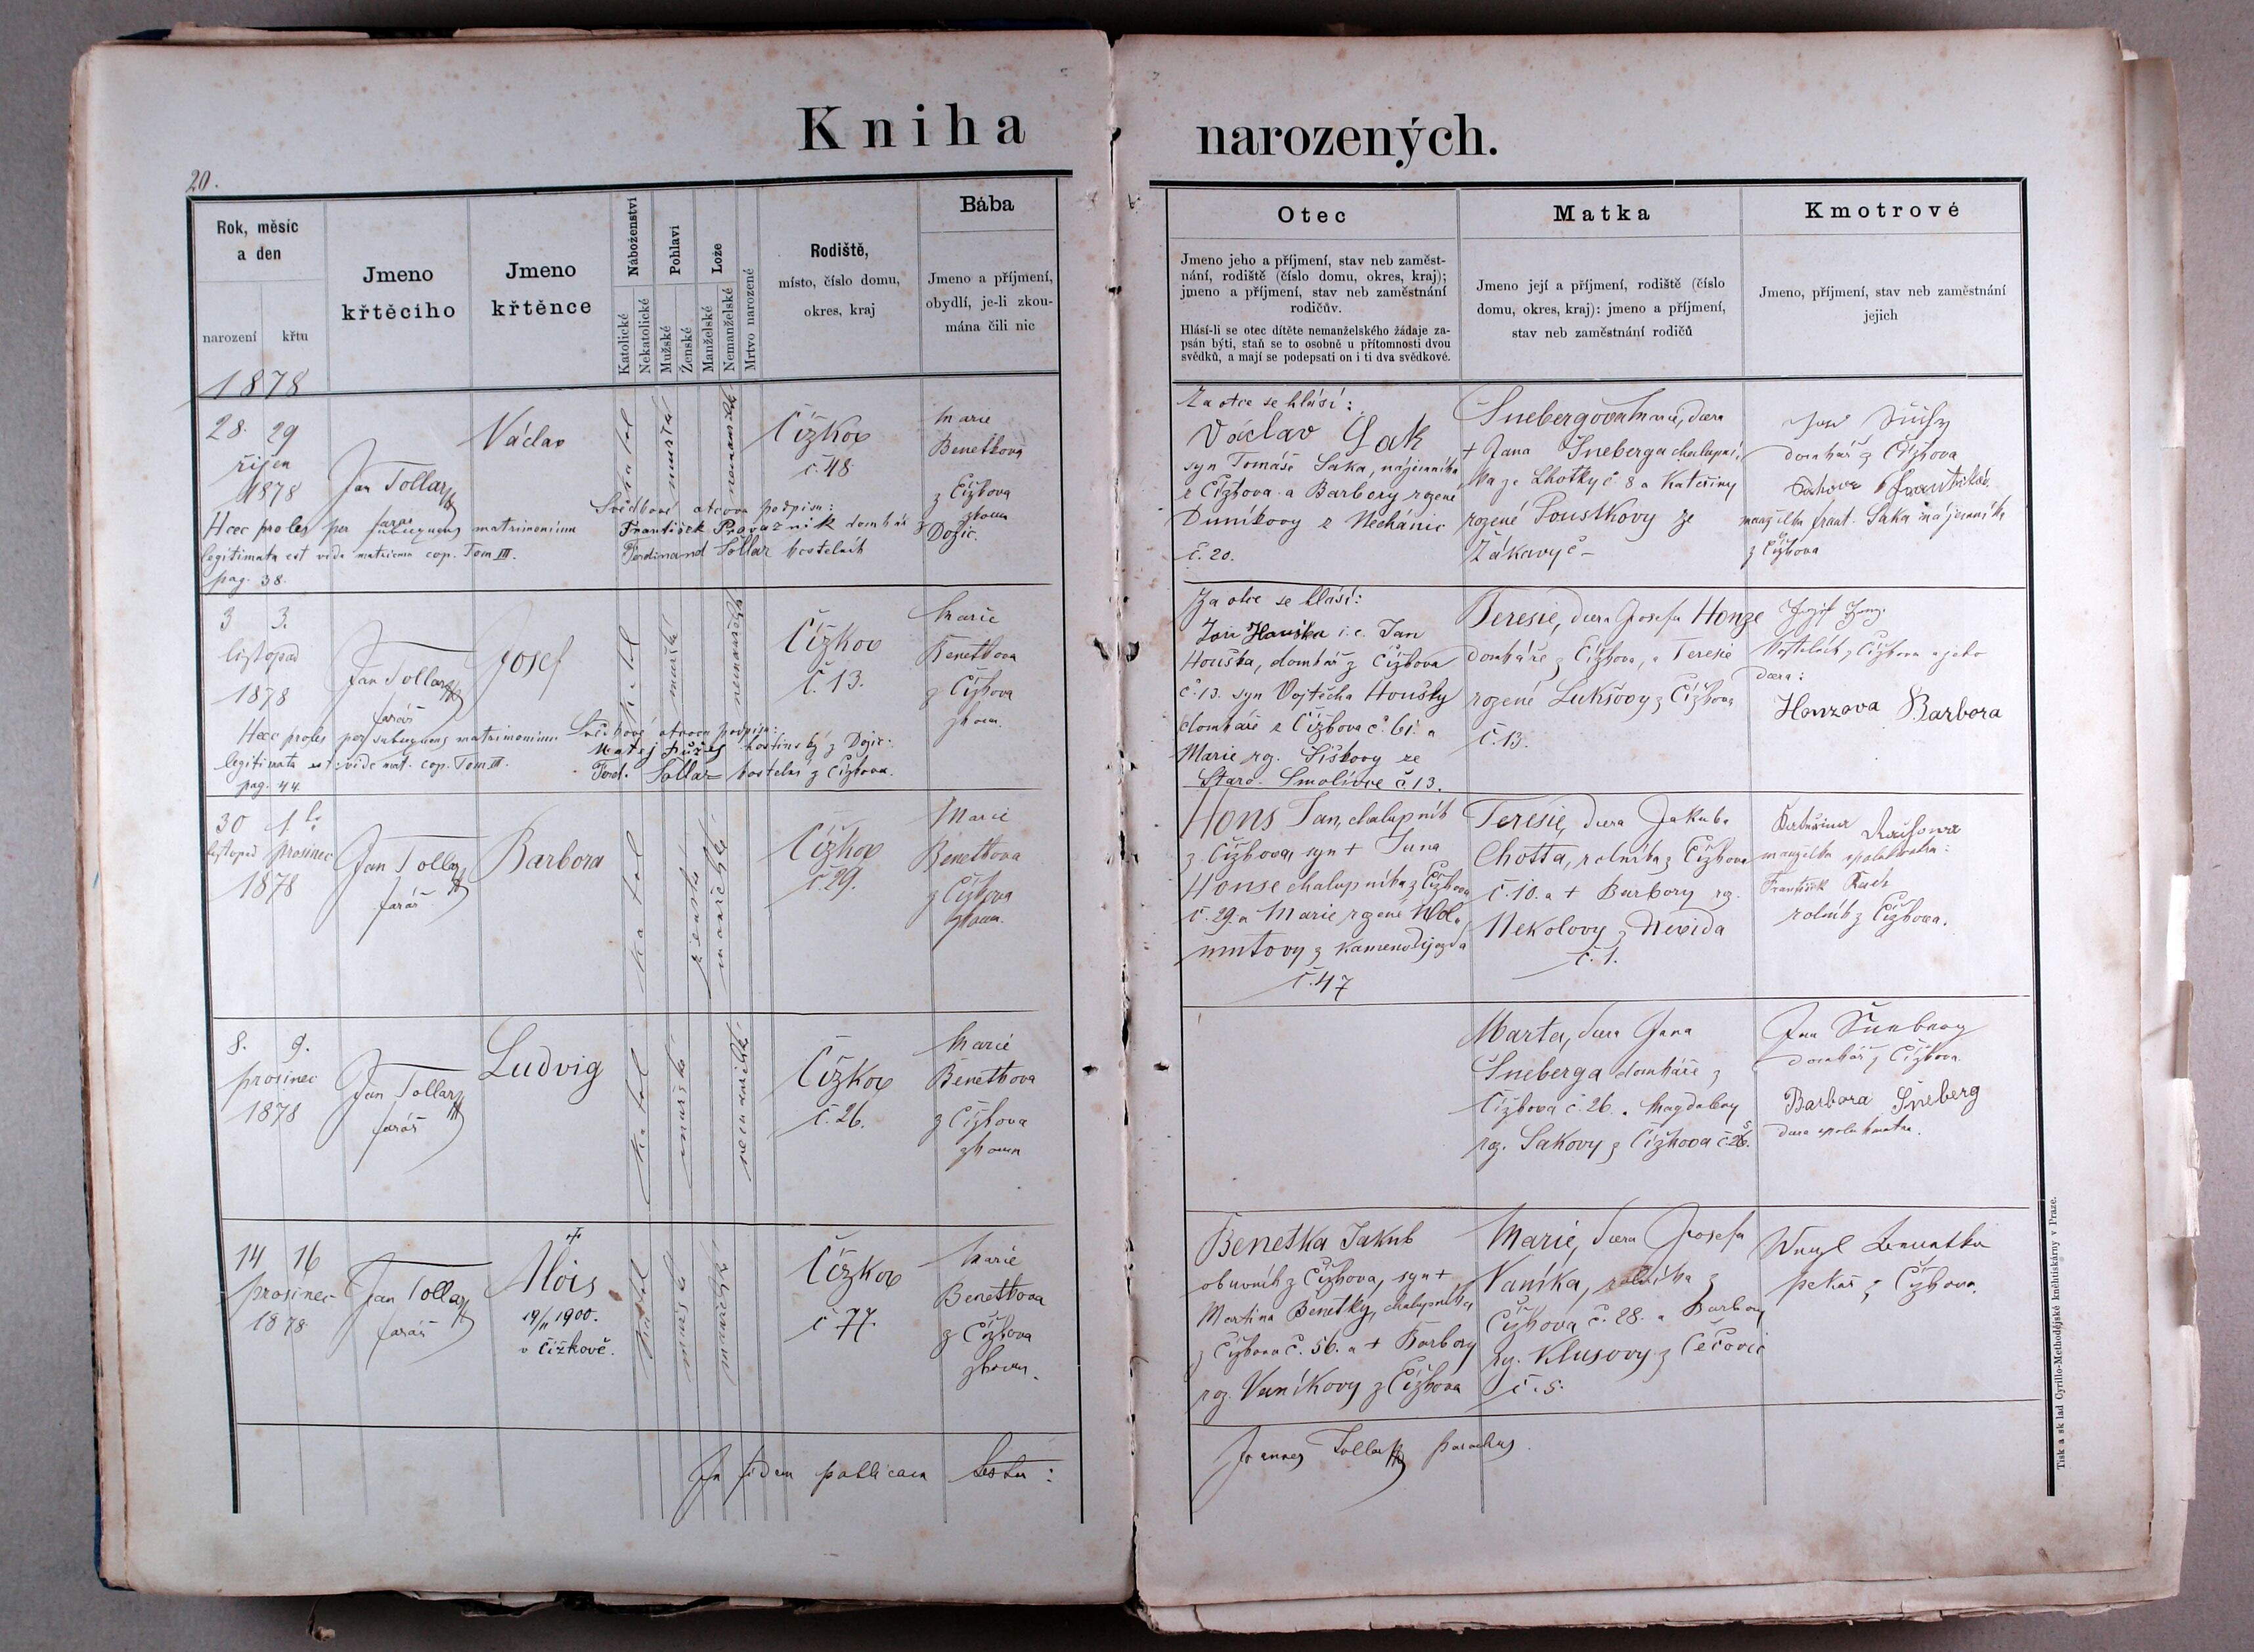 Kniha narozených.
20.
Rok, měsíc
a den
narození
křtu
Jmeno
křtěcího
Jmeno
křtěnce
Náboženství
Katolické
Nekatolické
Pohlaví
Mužské
Ženské
Lože
Manželské
Nemanželské
Mrtvo narozené
Rodiště,
místo, číslo domu,
okres, kraj
Bába
Jmeno a příjmení,
obydlí, je-li zkou-
mána čili nic
Otec
Jmeno jeho a příjmení, stav neb zaměst-
nání, rodiště (číslo domu, okres, kraj);
jmeno a příjmení, stav neb zaměstnání
rodičův.
Hlásí-li se otec dítěte nemanželského žádaje za-
psán býti, staň se to osobně u přítomnosti dvou
svědků, a mají se podepsati on i ti dva svědkové.
Matka
Jmeno její a příjmení, rodiště (číslo
domu, okres, kraj): jmeno a příjmení,
stav neb zaměstnání rodičů
Kmotrové
Jmeno, příjmení, stav neb zaměstnání
jejich
1878
28. 29
říjen
1878
Jan Tollar
farář
Václav
katol
mužské
nemanželské
Čížkov
č. 48
Marie
Benetkova
z Čížkova
zkoum
Dožic.
Haec proles per subsequens matrimonium
legitimata est vide matricam cop. Tom III.
pag. 38.
Svědkové otcova podpisu:
František Provazník domkář z
Ferdinand Sollar kostelník
Za otce se hlásí:
Václav Sak
syn Tomáše Saka, nájemníka
z Čížkova a Barbory rozené
Duníkovy z Nechánic
č. 20.
Šnebergova Marie, dcera
+ Jana Šneberga chalupní-
ka ze Lhotky č 8 a Kateřiny
rozené Poustkovy ze
Žákavy č –
domkář z Čížkova
manželka Frant. Saka nájemníka
z Čížkova
3 3.
listopad
1878
Jan Tollar
farář
Josef
katol
mužské
nemanželské
Čížkov
č. 13.
Marie
Benetkova
z Čížkova
zkoum.
Haec proles per subsequens matrimonium
legitimata est: vide mat. cop. Tom III.
pag. 44.
Svědkové otcova podpisu:
Matěj hostinský z Dožic:
Ferd. Sollar kostelní z Čížkova.
Za otce se hlásí:
Jan Houška i. e. Jan
Houška, domkář z Čížkova
č. 13. syn Vojtěcha Houšky
domkáře z Čížkova č. 61. a
Marie rz. Šiškovy ze
Staro. Smolivce č 13.
Teresie, dcera Josefa Honze
domkáře z Čížkova, a Teresie
rozené Lukšovy z Čížkova
č. 13.
Kostelník z Čížkova a jeho
dcera:
Honzova Barbora
30 1.
listopad prosinec
1878
Jan Tollar
farář
Barbora
katol
ženské
manželské
Čížkov
č. 29.
Marie
Benetkova
z Čížkova
zkoum.
Hons Jan, chalupník
z Čížkova, syn + Jana
Honse chalupníka z Čížkova
č. 29. a Marie rozené Kld-
mutovy z Kamenoújezda
č. 47
Teresie, dcera Jakuba
Chotta, rolníka z Čížkova
č. 10. a + Barbory rz.
Nekolovy z Nevida
č. 1.
Kateřina
manželka spolukmotra:
František
rolník z Čížkova.
8. 9.
prosinec
1878
Jan Tollar
farář
Ludvig
katol
mužské
nemanželské
Čížkov
č. 26.
Marie
Benetkova
z Čížkova
zkoum
Marta, dcera Jana
Šneberga domkáře z
Čížkova č. 26. a Magdaleny
rz. Sakovy z Čížkova č. 25.
Jan Šneberg
domkář z Čížkova.
Barbora Šneberg
dcera spolukmotra.
14 16
prosinec
1878
Jan Tollar
farář
Alois
19/11 1900.
v Čížkově.
katol
mužské
manželské
Čížkov
č 77.
Marie
Benetkova
z Čížkova
zkoum.
Benetka Jakub
obuvník z Čížkova, syn +
Martina Benetky, chalupníka
z Čížkova č. 56. a + Barbory
rz. Vaníkovy z Čížkova
Marie, dcera Josefa
Vaníka, rolníka z
Čížkova č. 28. a Barbory
rz. Klusovy z Čečovic
č. 5.
pekař z Čížkova.
In fidem publicam testor:
Joannes Tollar parochus.
Tisk a sklad Cyrillo-Methodějské kněhtiskárny v Praze.